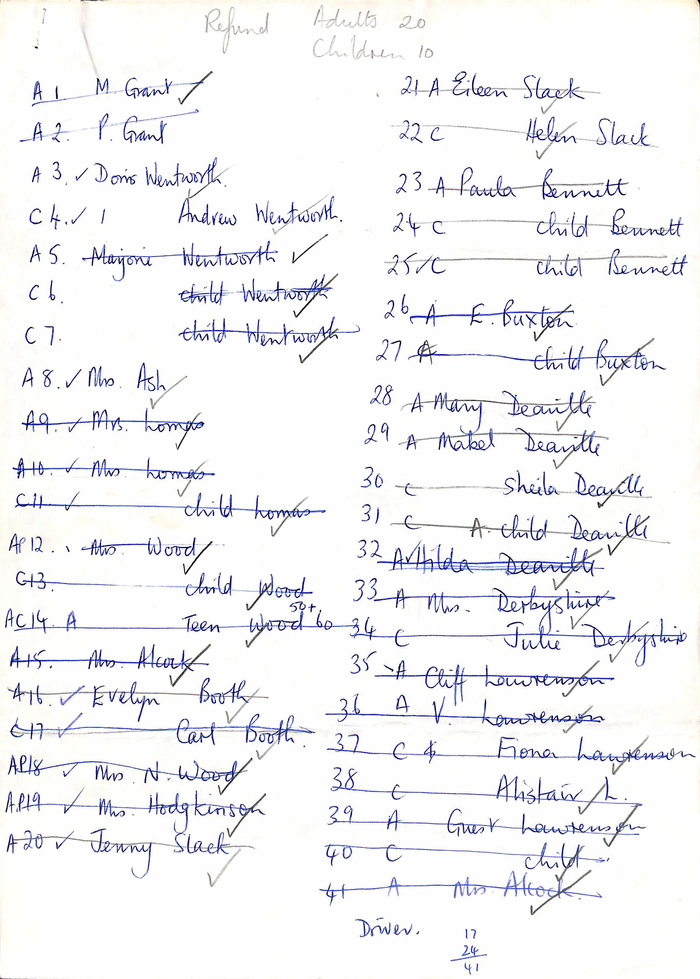 Refund Adults 20
Children 10
A 1 M Grant ✓
A 2. P. Grant
A 3. ✓ Doris Wentworth.
C 4. ✓ 1 Andrew Wentworth.
A 5. Marjorie Wentworth ✓
C 6. child Wentworth
C 7. child Wentworth
A 8. ✓ Mrs. Ash
A9. ✓ Mrs. Lomas
A10. ✓ Mrs Lomas
C11 ✓ child Lomas
AP12. Mrs Wood
C13. child Wood
50+
AC14. A Teen Wood 60
A15. Mrs. Alcock
A16. ✓ Evelyn Booth
C17 ✓ Carl Booth.
AP18 ✓ Mrs N. Wood
AP19 ✓ Mrs. Hodgkinson
A20 ✓ Jenny Slack
21 A Eileen Slack
22 C Helen Slack
23 A Paula Bennett
24 C child Bennett
25 C child Bennett
26 A E. Buxton
27 A child Buxton
28 A Mary Deaville
29 A Mabel Deaville
30 C Sheila Deaville
31 C A. child Deaville
32 A ✓ Hilda Deaville
33 A Mrs. Derbyshire
34 C Julie Derbyshire
35 A Cliff Lawrenson
36 A V. Lawrenson
37 C Fiona Lawrenson
38 C Alistair L.
39 A Guest Lawrenson
40 C child
41 A Mrs Alcock.
Driver.
17
24
41